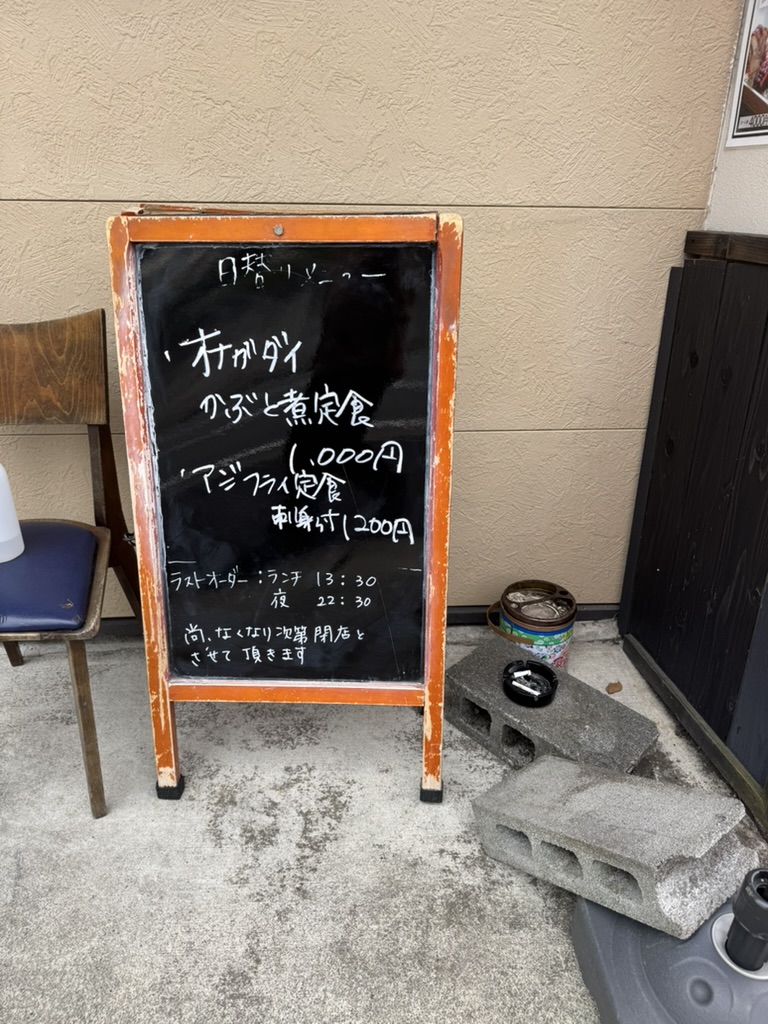 日替りメニュー
・オナガダイ
かぶと煮定食
1,000円
・アジフライ定食
刺身付 1200円
ラストオーダー：ランチ 13：30
夜 22：30
尚、なくなり次第閉店と
させて頂きます